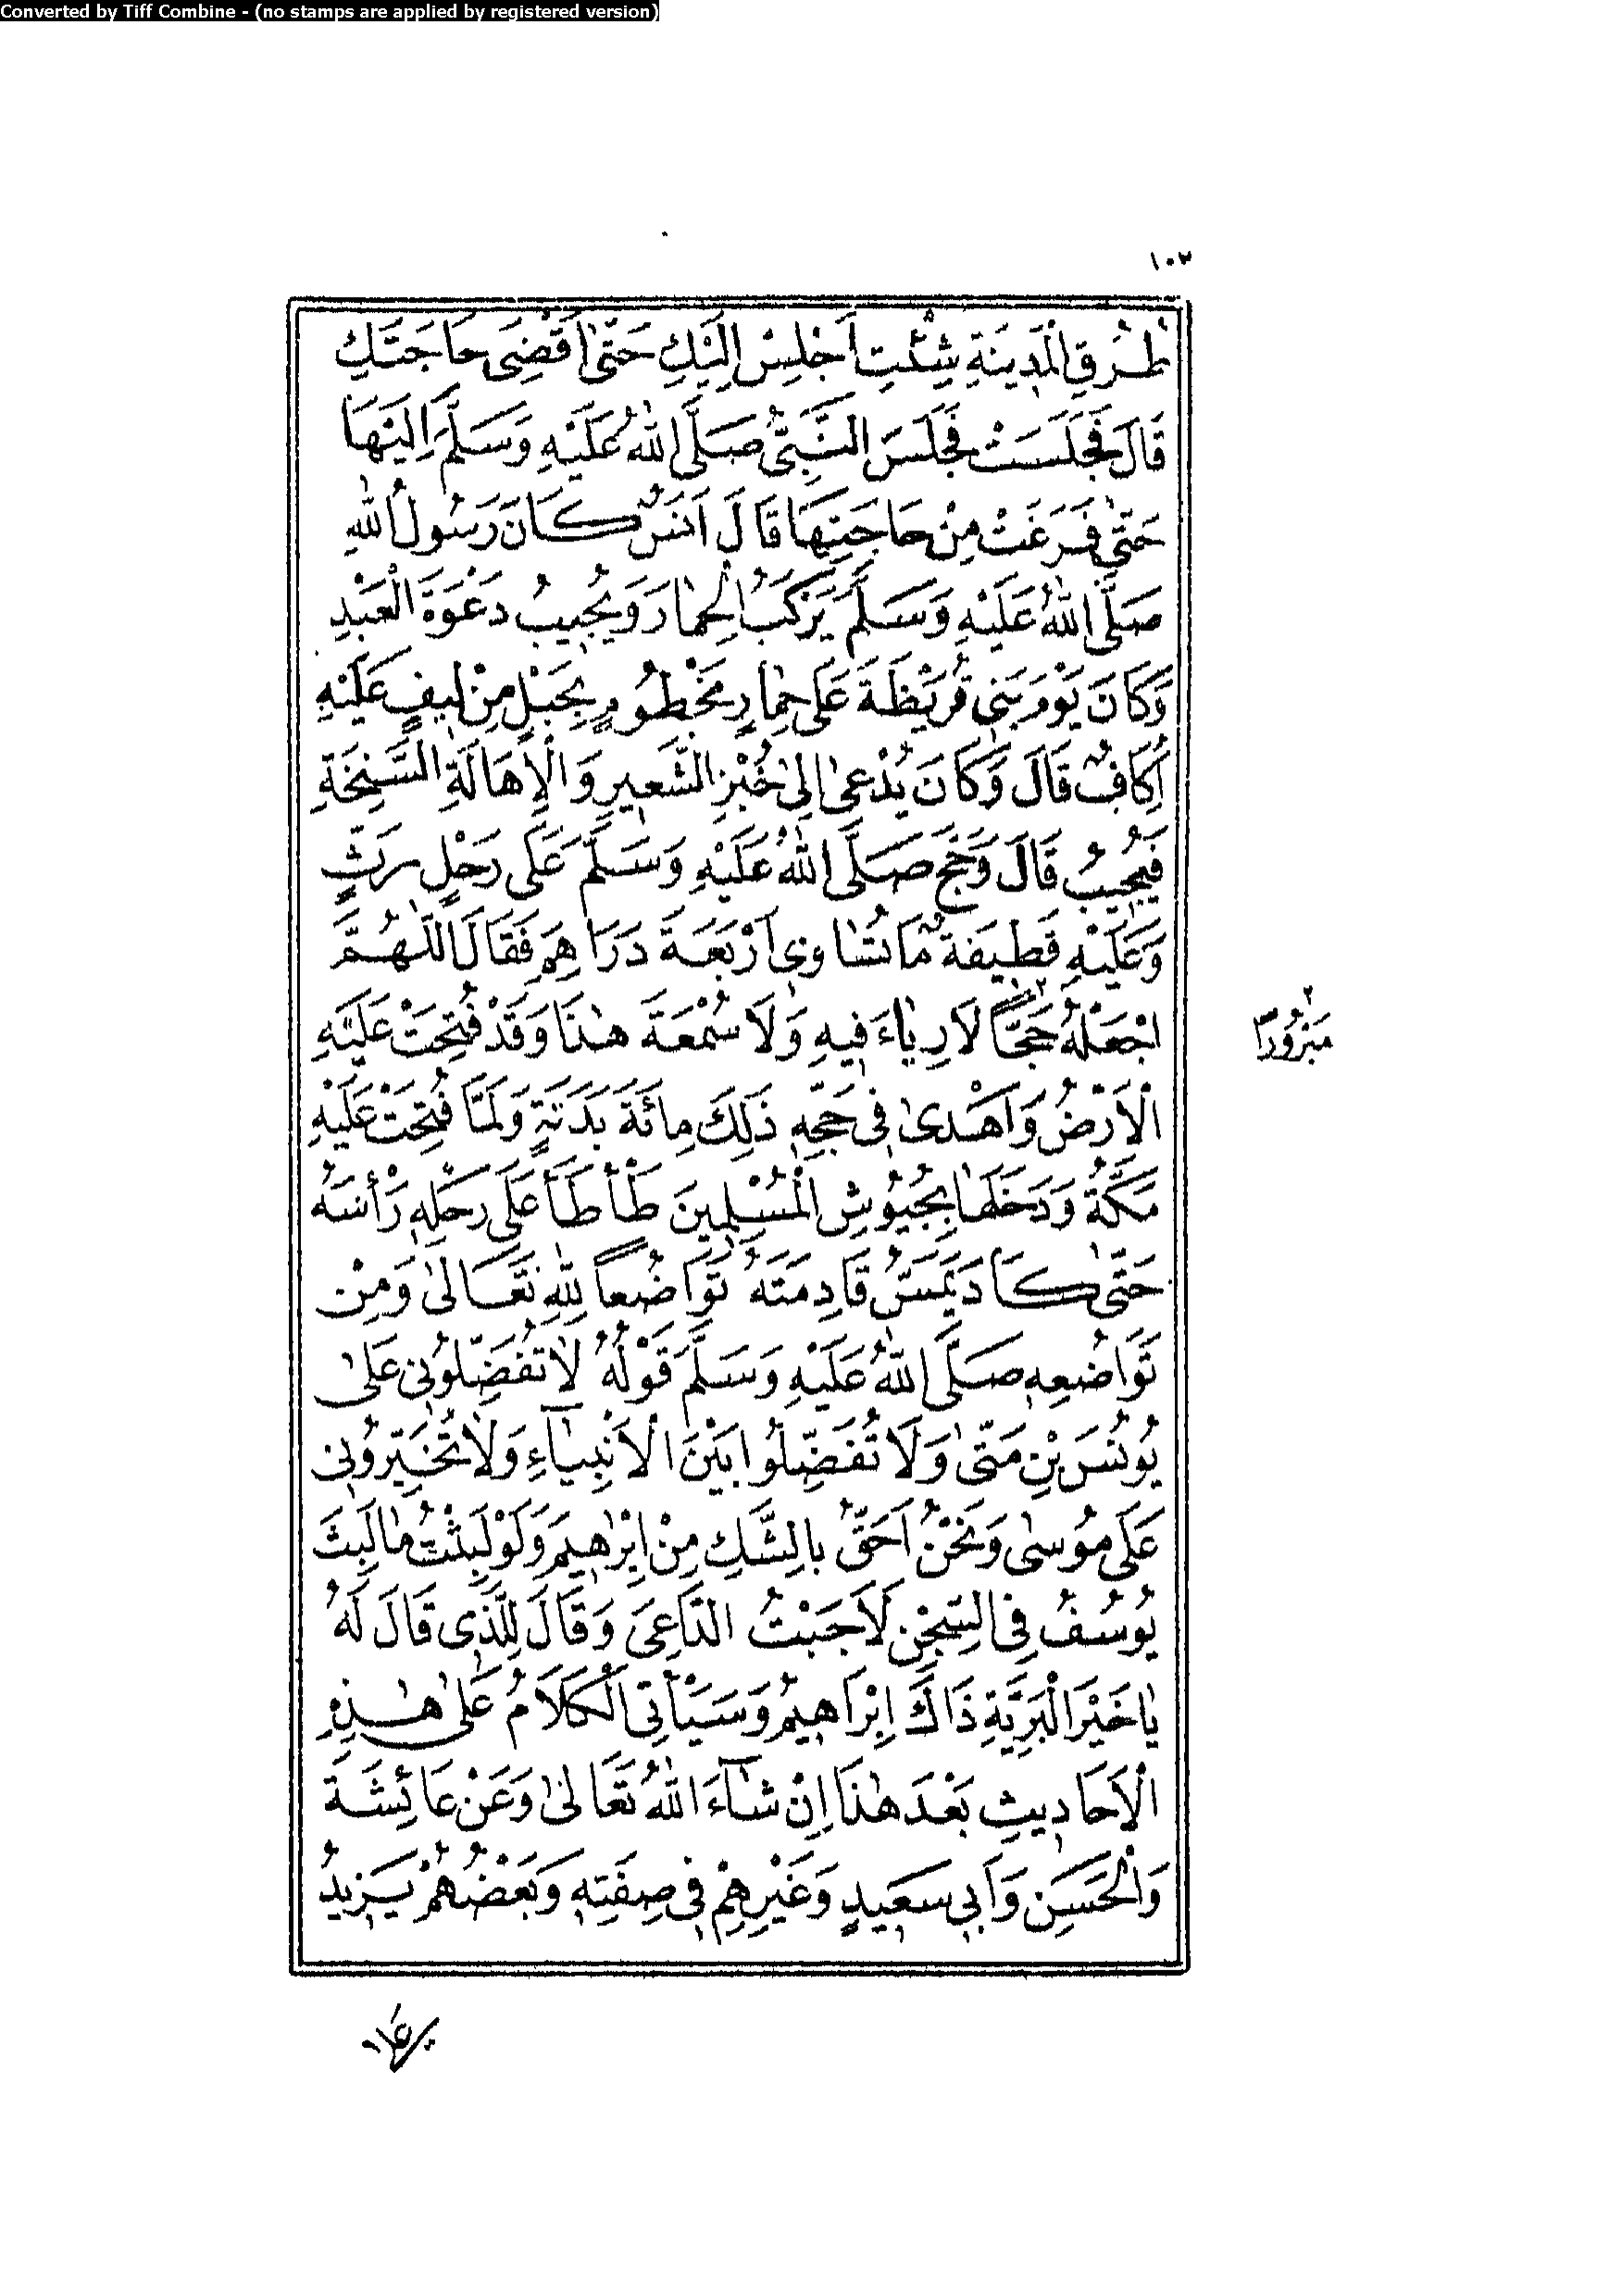 Converted by Tiff Combine - (no stamps are applied by registered version)
١٠٢
طُرُقِ الْمَدِينَةِ شِئْتِ أَجْلِسْ إِلَيْكِ حَتَّى أَقْضِيَ حَاجَتَكِ
قَالَ فَجَلَسَتْ فَجَلَسَ النَّبِيُّ صَلَّى اللّٰهُ عَلَيْهِ وَسَلَّمَ إِلَيْهَا
حَتَّى فَرَغَتْ مِنْ حَاجَتِهَا قَالَ أَنَسٌ كَانَ رَسُولُ اللّٰهِ
صَلَّى اللّٰهُ عَلَيْهِ وَسَلَّمَ يَرْكَبُ الْحِمَارَ وَيُجِيبُ دَعْوَةَ الْعَبْدِ
وَكَانَ يَوْمَ بَنِي قُرَيْظَةَ عَلَى حِمَارٍ مَخْطُومٍ بِحَبْلٍ مِنْ لِيفٍ عَلَيْهِ
إِكَافٌ قَالَ وَكَانَ يُدْعَى إِلَى خُبْزِ الشَّعِيرِ وَالْإِهَالَةِ السَّنِخَةِ
فَيُجِيبُ قَالَ وَحَجَّ صَلَّى اللّٰهُ عَلَيْهِ وَسَلَّمَ عَلَى رَحْلٍ رَثٍّ
وَعَلَيْهِ قَطِيفَةٌ مَا تُسَاوِي أَرْبَعَةَ دَرَاهِمَ فَقَالَ اللّٰهُمَّ
اجْعَلْهُ حَجًّا٢ لَا رِيَاءَ فِيهِ وَلَا سُمْعَةَ هٰذَا وَقَدْ فُتِحَتْ عَلَيْهِ
٢ مَبْرُورًا
الْأَرْضُ وَأَهْدَى فِي حَجِّهِ ذَلِكَ مِائَةَ بَدَنَةٍ وَلَمَّا فُتِحَتْ عَلَيْهِ
مَكَّةُ وَدَخَلَهَا بِجُيُوشِ الْمُسْلِمِينَ طَأْطَأَ عَلَى رَحْلِهِ رَأْسَهُ
حَتَّى كَادَ يَمَسُّ قَادِمَتَهُ تَوَاضُعًا لِلّٰهِ تَعَالَى وَمِنْ
تَوَاضُعِهِ صَلَّى اللّٰهُ عَلَيْهِ وَسَلَّمَ قَوْلُهُ لَا تُفَضِّلُونِي عَلَى
يُونُسَ بْنِ مَتَّى وَلَا تُفَضِّلُوا بَيْنَ الْأَنْبِيَاءِ وَلَا تُخَيِّرُونِي
عَلَى مُوسَى وَنَحْنُ أَحَقُّ بِالشَّكِّ مِنْ إِبْرٰهِيمَ وَلَوْ لَبِثْتُ مَا لَبِثَ
يُوسُفُ فِي السِّجْنِ لَأَجَبْتُ الدَّاعِيَ وَقَالَ لِلَّذِي قَالَ لَهُ
يَا خَيْرَ الْبَرِيَّةِ ذَاكَ إِبْرَاهِيمُ وَسَيَأْتِي الْكَلَامُ عَلَى هٰذِهِ
الْأَحَادِيثِ بَعْدَ هٰذَا إِنْ شَاءَ اللّٰهُ تَعَالَى وَعَنْ عَائِشَةَ
وَالْحَسَنِ وَأَبِي سَعِيدٍ وَغَيْرِهِمْ فِي صِفَتِهِ وَبَعْضُهُمْ يَزِيدُ